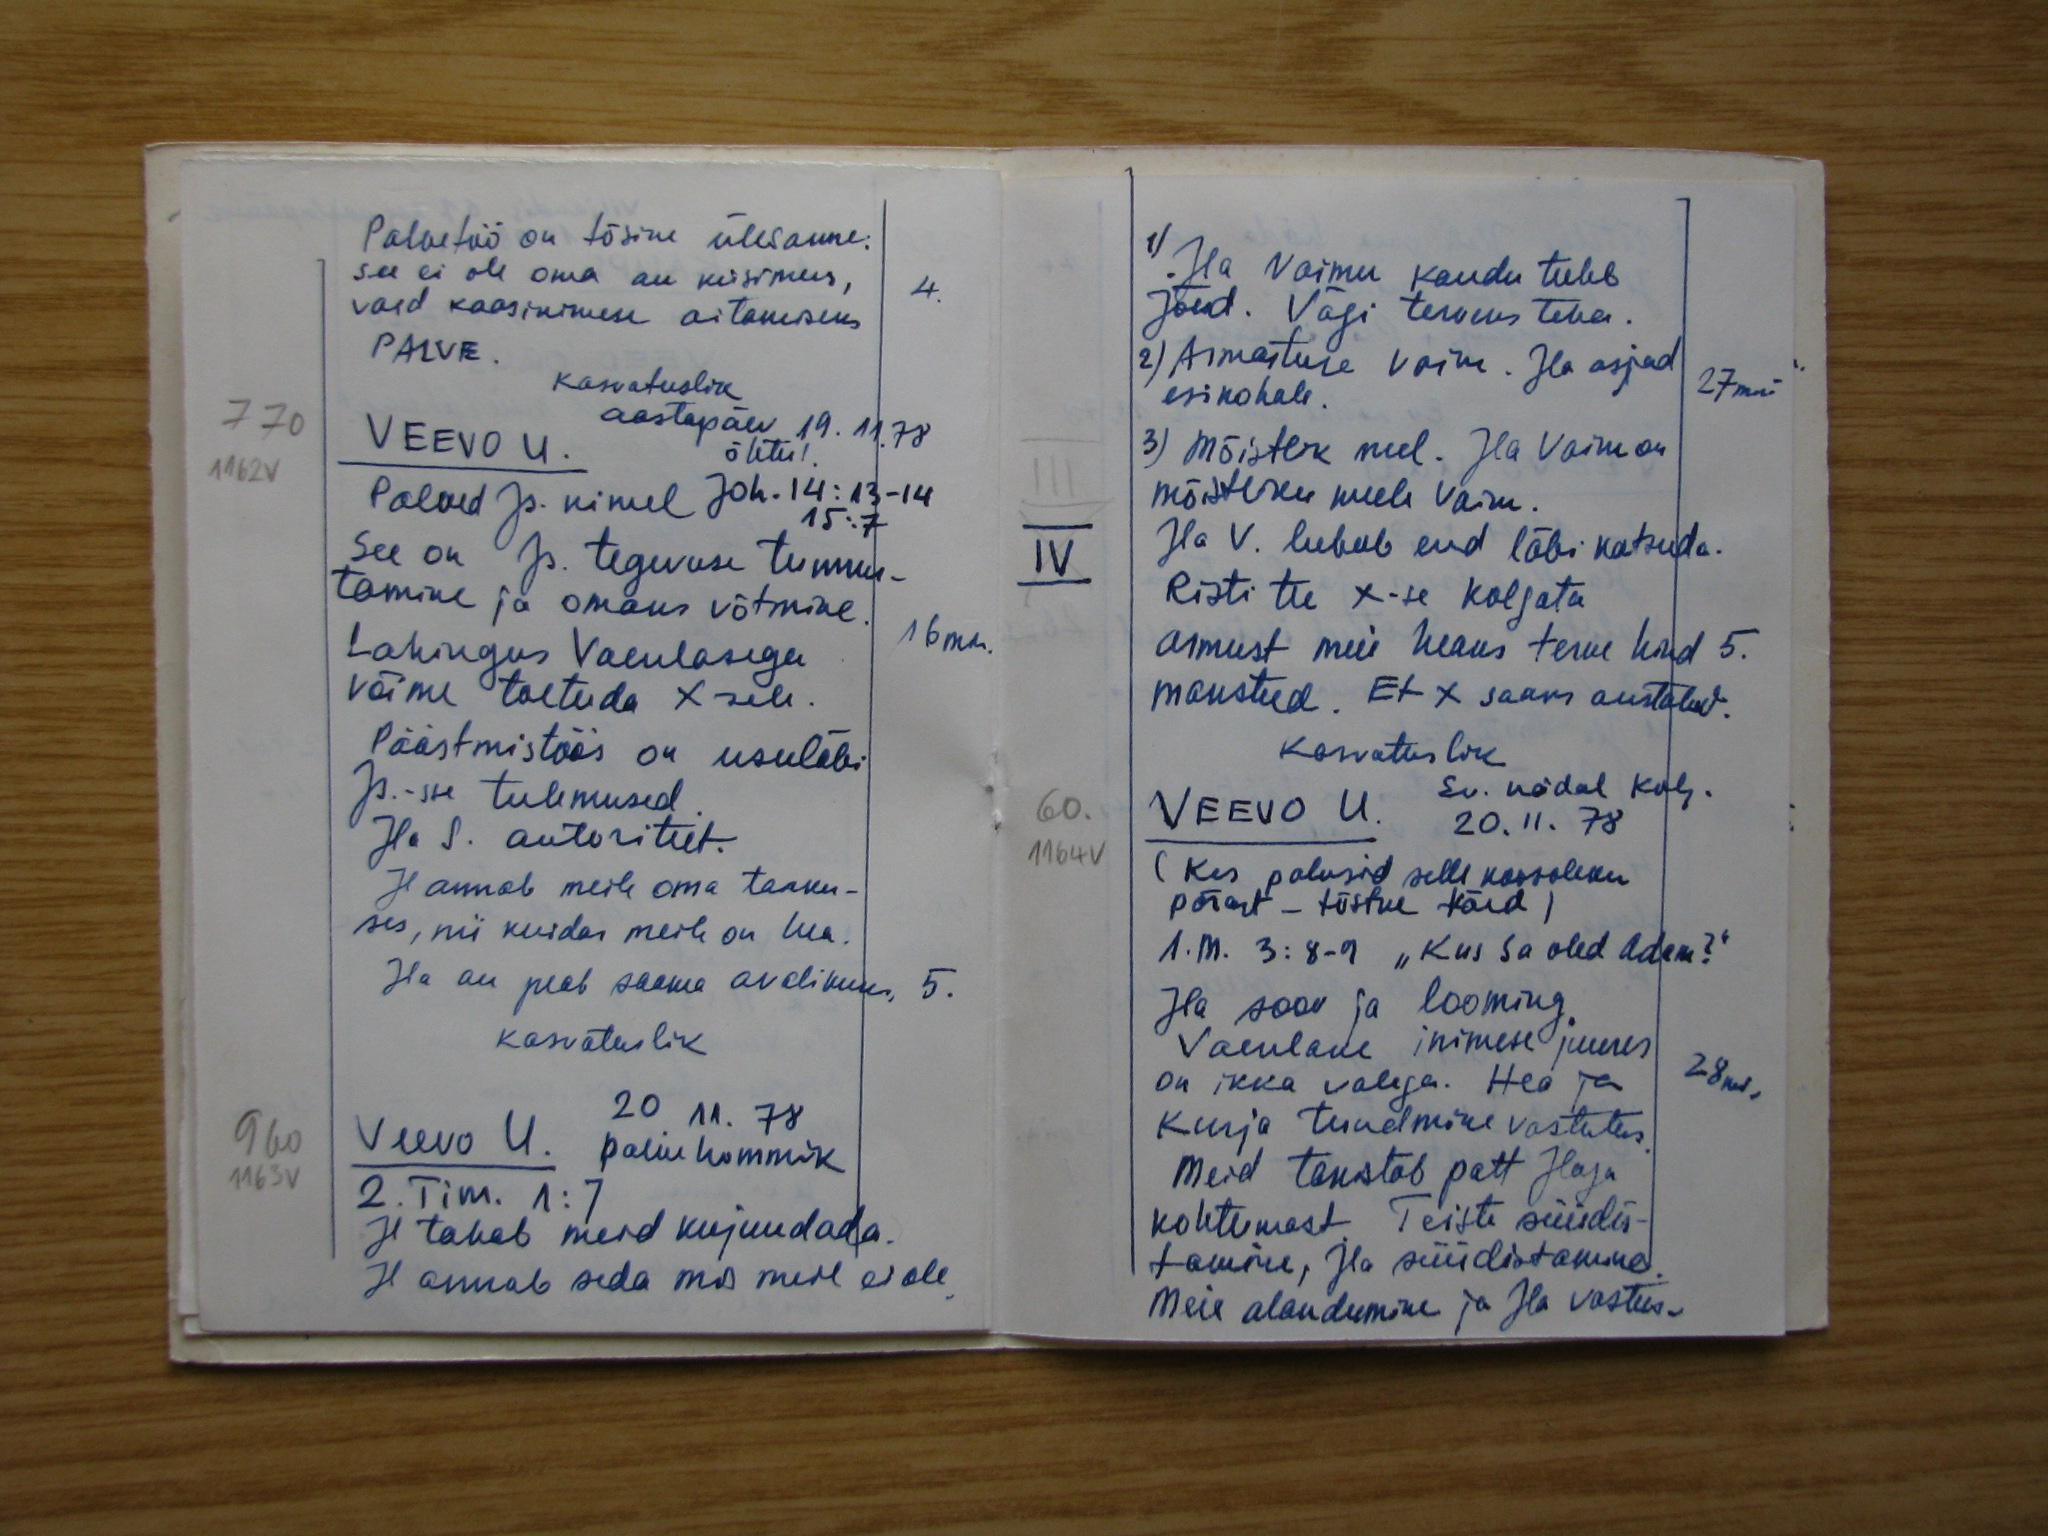 Palvetöö on tõsine ülesanne:
see ei ole oma au küsimus,
vaid kaasinimese aitamiseks
4.
PALVE.
kasvatuslik
aastapäev 19.11.78
õhtu!
770
1162V
VEEVO U.
Palved Js. nimel Joh. 14:13-14
15:7
See on Js. tegevuse tunnus-
tamine ja omaks võtmine.
16 min.
Lahingus Vaenlasega
võime toetuda X-sele.
Päästmistöös on usuläbi
Js.-sse tulemused.
Jla S. autoriteet.
Jl annab meile oma tarku-
ses, nii kuidas meile on hea.
Jla au peab saama avalikuks, 5.
kasvatuslik
960
1163V
Veevo U.
20 11. 78
palve hommik
2. Tim. 1:7
Jl tahab meid kujundada.
Jl annab seda mis meil ei ole.
1) Jla Vaimu kaudu tuleb
jõud. Vägi terveks teha.
2) Armastuse vaim. Jla asjad
esikohale.
27 min
3) Mõistlik meel. Jla Vaim on
mõistliku meele vaim.
III
IV
Jla V. lubab end läbi katsuda.
Risti tee X-se Kolgata
armust meie heaks terve hind 5.
makstud. Et X saaks austatud.
kasvatuslik
60.
1164V
VEEVO U.
Ev. nädal Kolg.
20.11.78
(Kes palusid selle koosoleku
pärast - tõstke käed)
1.M. 3:8-9 „Kus Sa oled Adam?"
Jla soov ja looming.
Vaenlane inimese juures
on ikka valega. Hea ja
28 min.
Kurja tundmine vastutus.
Meid takistab patt Jlaga
kohtumast. Teiste süüdis-
tamine, Jla süüdistamine.
Meie alandumine ja Jla vastus-